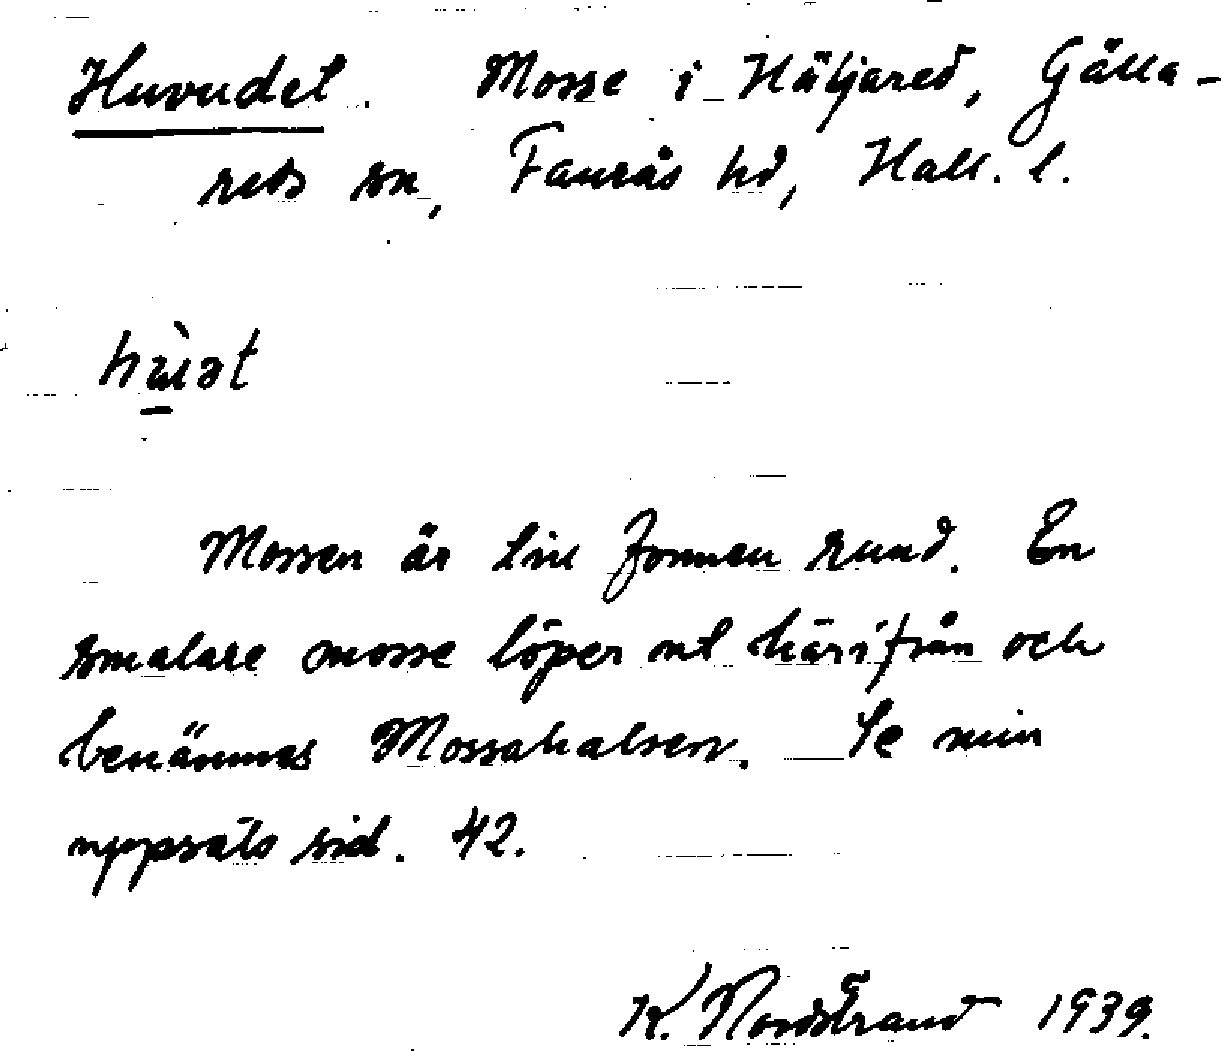 Huvudet. Mosse i Häljared, Gälla-
reds sn, Faurås hd, Hall. l.
Mossen är till formen rund. En
smalare mosse löper ut härifrån och
benämnes Mossahalsen. Se min
uppsats sid. 42.
K. Nordstrand 1939.